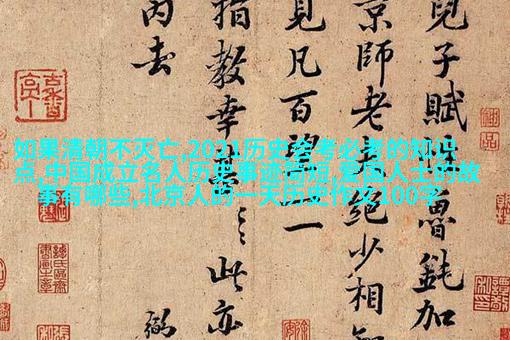 兒子賦愚鈍加
京師老絕少相
見凡百望一一
指教幸此亦
去
如果清朝不灭亡,2021历史会考必考的知识
点,中国成立名人历史事迹简短,爱国人士的故
事有哪些,北京人的一天历史作文100字